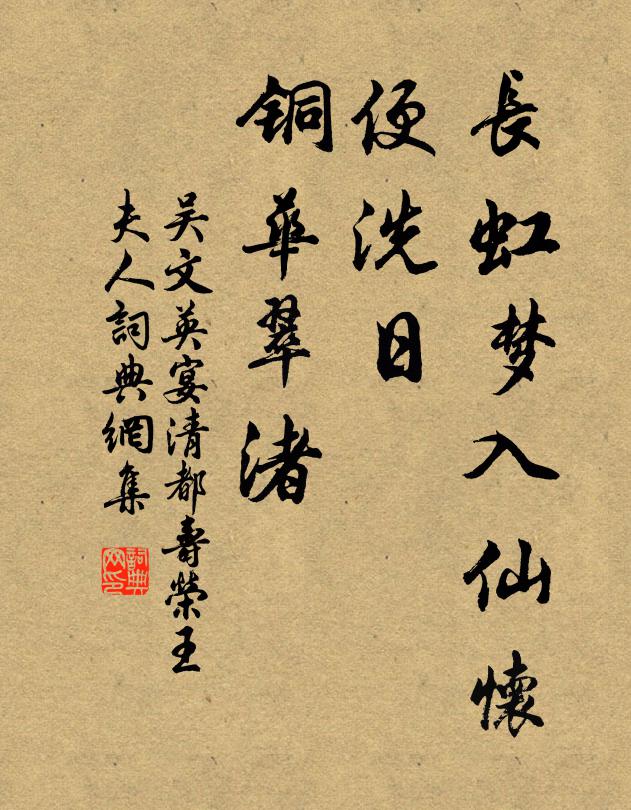 長虹梦入仙懷
便洗日
铜華翠渚
吴文英宴清都壽榮王
夫人詞典網集
詞典网印